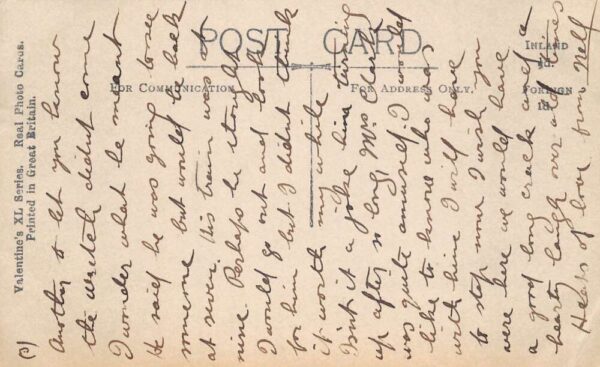 POST CARD
FOR COMMUNICATION
FOR ADDRESS ONLY.
INLAND
FOREIGN
Valentine's XL Series. Real Photo Cards.
Printed in Great Britain.
(3)
Another to let you know
the wretch didn't come
I wonder what he meant
He said he was going to see
someone but would be back
at seven. His train was at
nine. Perhaps he thought
I would go out and look
for him but I didn't think
it worth my while
Isn't it a joke him turning
up after so long, Mrs Clark
was quite amused. I would
like to know who was
with him I will have
to stop now I wish you
were here we would have
a good long crack and a
hearty laugh over old times
Heaps of love from Nell